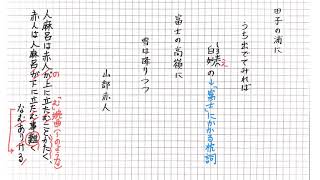 田子の浦に
うち出でてみれば
白妙の→「富士」にかかる枕詞
え
富士の高嶺に
雪は降りつつ
山部赤人
の
「む」婉曲(〜のような)
人麻呂は赤人が上に立たむことかたく、
赤人は人麻呂が下に立たむ事難く
なむありける